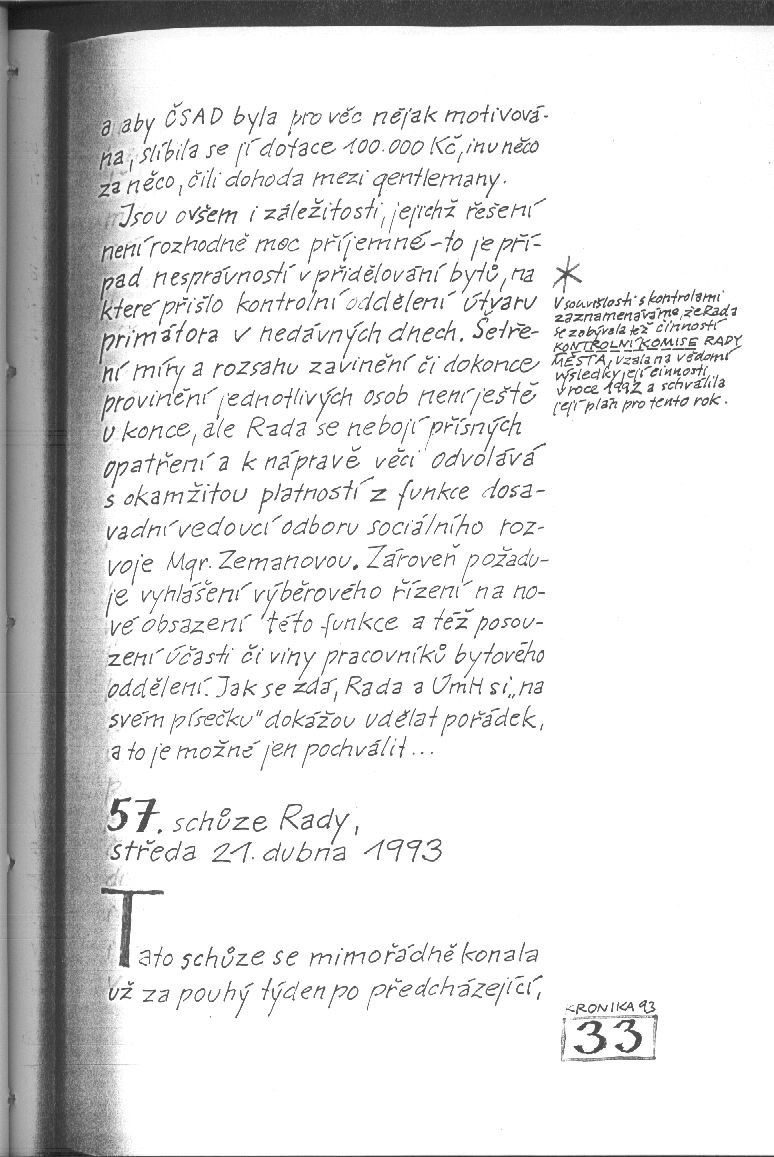 a aby ČSAD byla pro věc nějak motivová-
na, slíbila se jí dotace 100.000 Kč, inu něco
za něco, čili dohoda mezi gentlemany.
Jsou ovšem i záležitosti, jejichž řešení
není rozhodně moc příjemné – to je pří-
pad nesprávností v přidělování bytů, na
které přišlo kontrolní oddělení Útvaru
primátora v nedávných dnech. Šetře-
ní míry a rozsahu zavinění či dokonce
provinění jednotlivých osob není ještě
u konce, ale Rada se nebojí přísných
opatření a k nápravě věci odvolává
s okamžitou platností z funkce dosa-
vadní vedoucí odboru sociálního roz-
voje Mgr. Zemanovou. Zároveň požadu-
je vyhlášení výběrového řízení na no-
vé obsazení této funkce a též posou-
zení účasti či viny pracovníků bytového
oddělení. Jak se zdá, Rada a ÚmH si „na
svém písečku" dokážou udělat pořádek,
a to je možné jen pochválit...
*
V souvislosti s kontrolami
zaznamenáváme, že Rada
se zabývala též činností
KONTROLNÍ KOMISE RADY
MĚSTA, vzala na vědomí
výsledky její činnosti
v roce 1992 a schválila
její plán pro tento rok.
57. schůze Rady,
středa 21. dubna 1993
Tato schůze se mimořádně konala
už za pouhý týden po předcházející,
KRONIKA 93
33